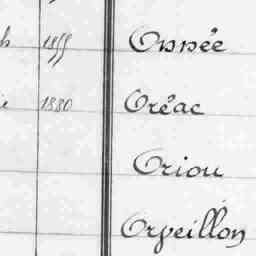 1855 Onnée
1880 Oréac
Oriou
Orveillon